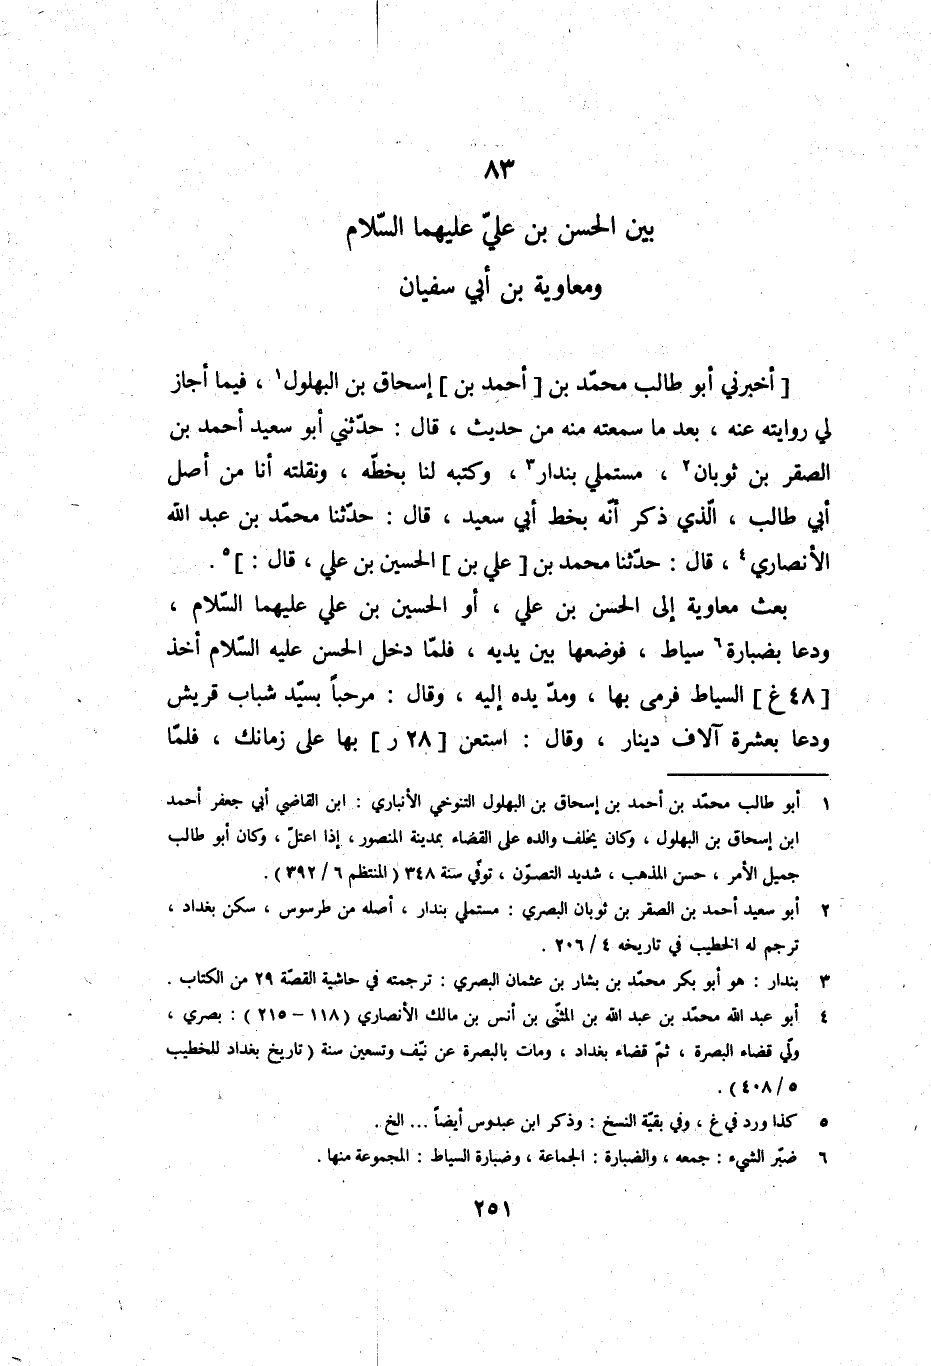 ٨٣
بين الحسن بن عليّ عليهما السّلام
ومعاوية بن أبي سفيان
[ أخبرني أبو طالب محمّد بن [ أحمد بن ] إسحاق بن البهلول١ ، فيما أجاز
لي روايته عنه ، بعد ما سمعته منه من حديث ، قال : حدّثني أبو سعيد أحمد بن
الصقر بن ثوبان٢ ، مستملي بندار٣ ، وكتبه لنا بخطّه ، ونقلته أنا من أصل
أبي طالب ، الّذي ذكر أنّه بخط أبي سعيد ، قال : حدّثنا محمّد بن عبد الله
الأنصاري٤ ، قال : حدّثنا محمد بن [ علي بن ] الحسين بن علي ، قال : ]٥ .
بعث معاوية إلى الحسن بن علي ، أو الحسين بن علي عليهما السّلام ،
ودعا بضبارة٦ سياط ، فوضعها بين يديه ، فلمّا دخل الحسن عليه السّلام أخذ
[ ٤٨ غ ] السياط فرمى بها ، ومدّ يده إليه ، وقال : مرحباً بسيّد شباب قريش
ودعا بعشرة آلاف دينار ، وقال : استعن [ ٢٨ ر ] بها على زمانك ، فلمّا
١ أبو طالب محمّد بن أحمد بن إسحاق بن البهلول التنوخي الأنباري : ابن القاضي أبي جعفر أحمد
ابن إسحاق بن البهلول ، وكان يخلف والده على القضاء بمدينة المنصور ، إذا اعتلّ ، وكان أبو طالب
جميل الأمر ، حسن المذهب ، شديد التصوّن ، توفّي سنة ٣٤٨ ( المنتظم ٦ / ٣٩٢ ) .
٢ أبو سعيد أحمد بن الصقر بن ثوبان البصري : مستملي بندار ، أصله من طرسوس ، سكن بغداد ،
ترجم له الخطيب في تاريخه ٤ / ٢٠٦ .
٣ بندار : هو أبو بكر محمّد بن بشار بن عثمان البصري : ترجمته في حاشية القصّة ٢٩ من الكتاب .
٤ أبو عبد الله محمّد بن عبد الله بن المثنّى بن أنس بن مالك الأنصاري ( ١١٨ – ٢١٥ ) : بصري ،
ولّي قضاء البصرة ، ثمّ قضاء بغداد ، ومات بالبصرة عن نيّف وتسعين سنة ( تاريخ بغداد للخطيب
٥ / ٤٠٨ ) .
٥ كذا ورد في غ ، وفي بقيّة النسخ : وذكر ابن عبدوس أيضاً ... الخ .
٦ ضبّر الشيء : جمعه ، والضبارة : الجماعة ، وضبارة السياط : المجموعة منها .
٢٥١